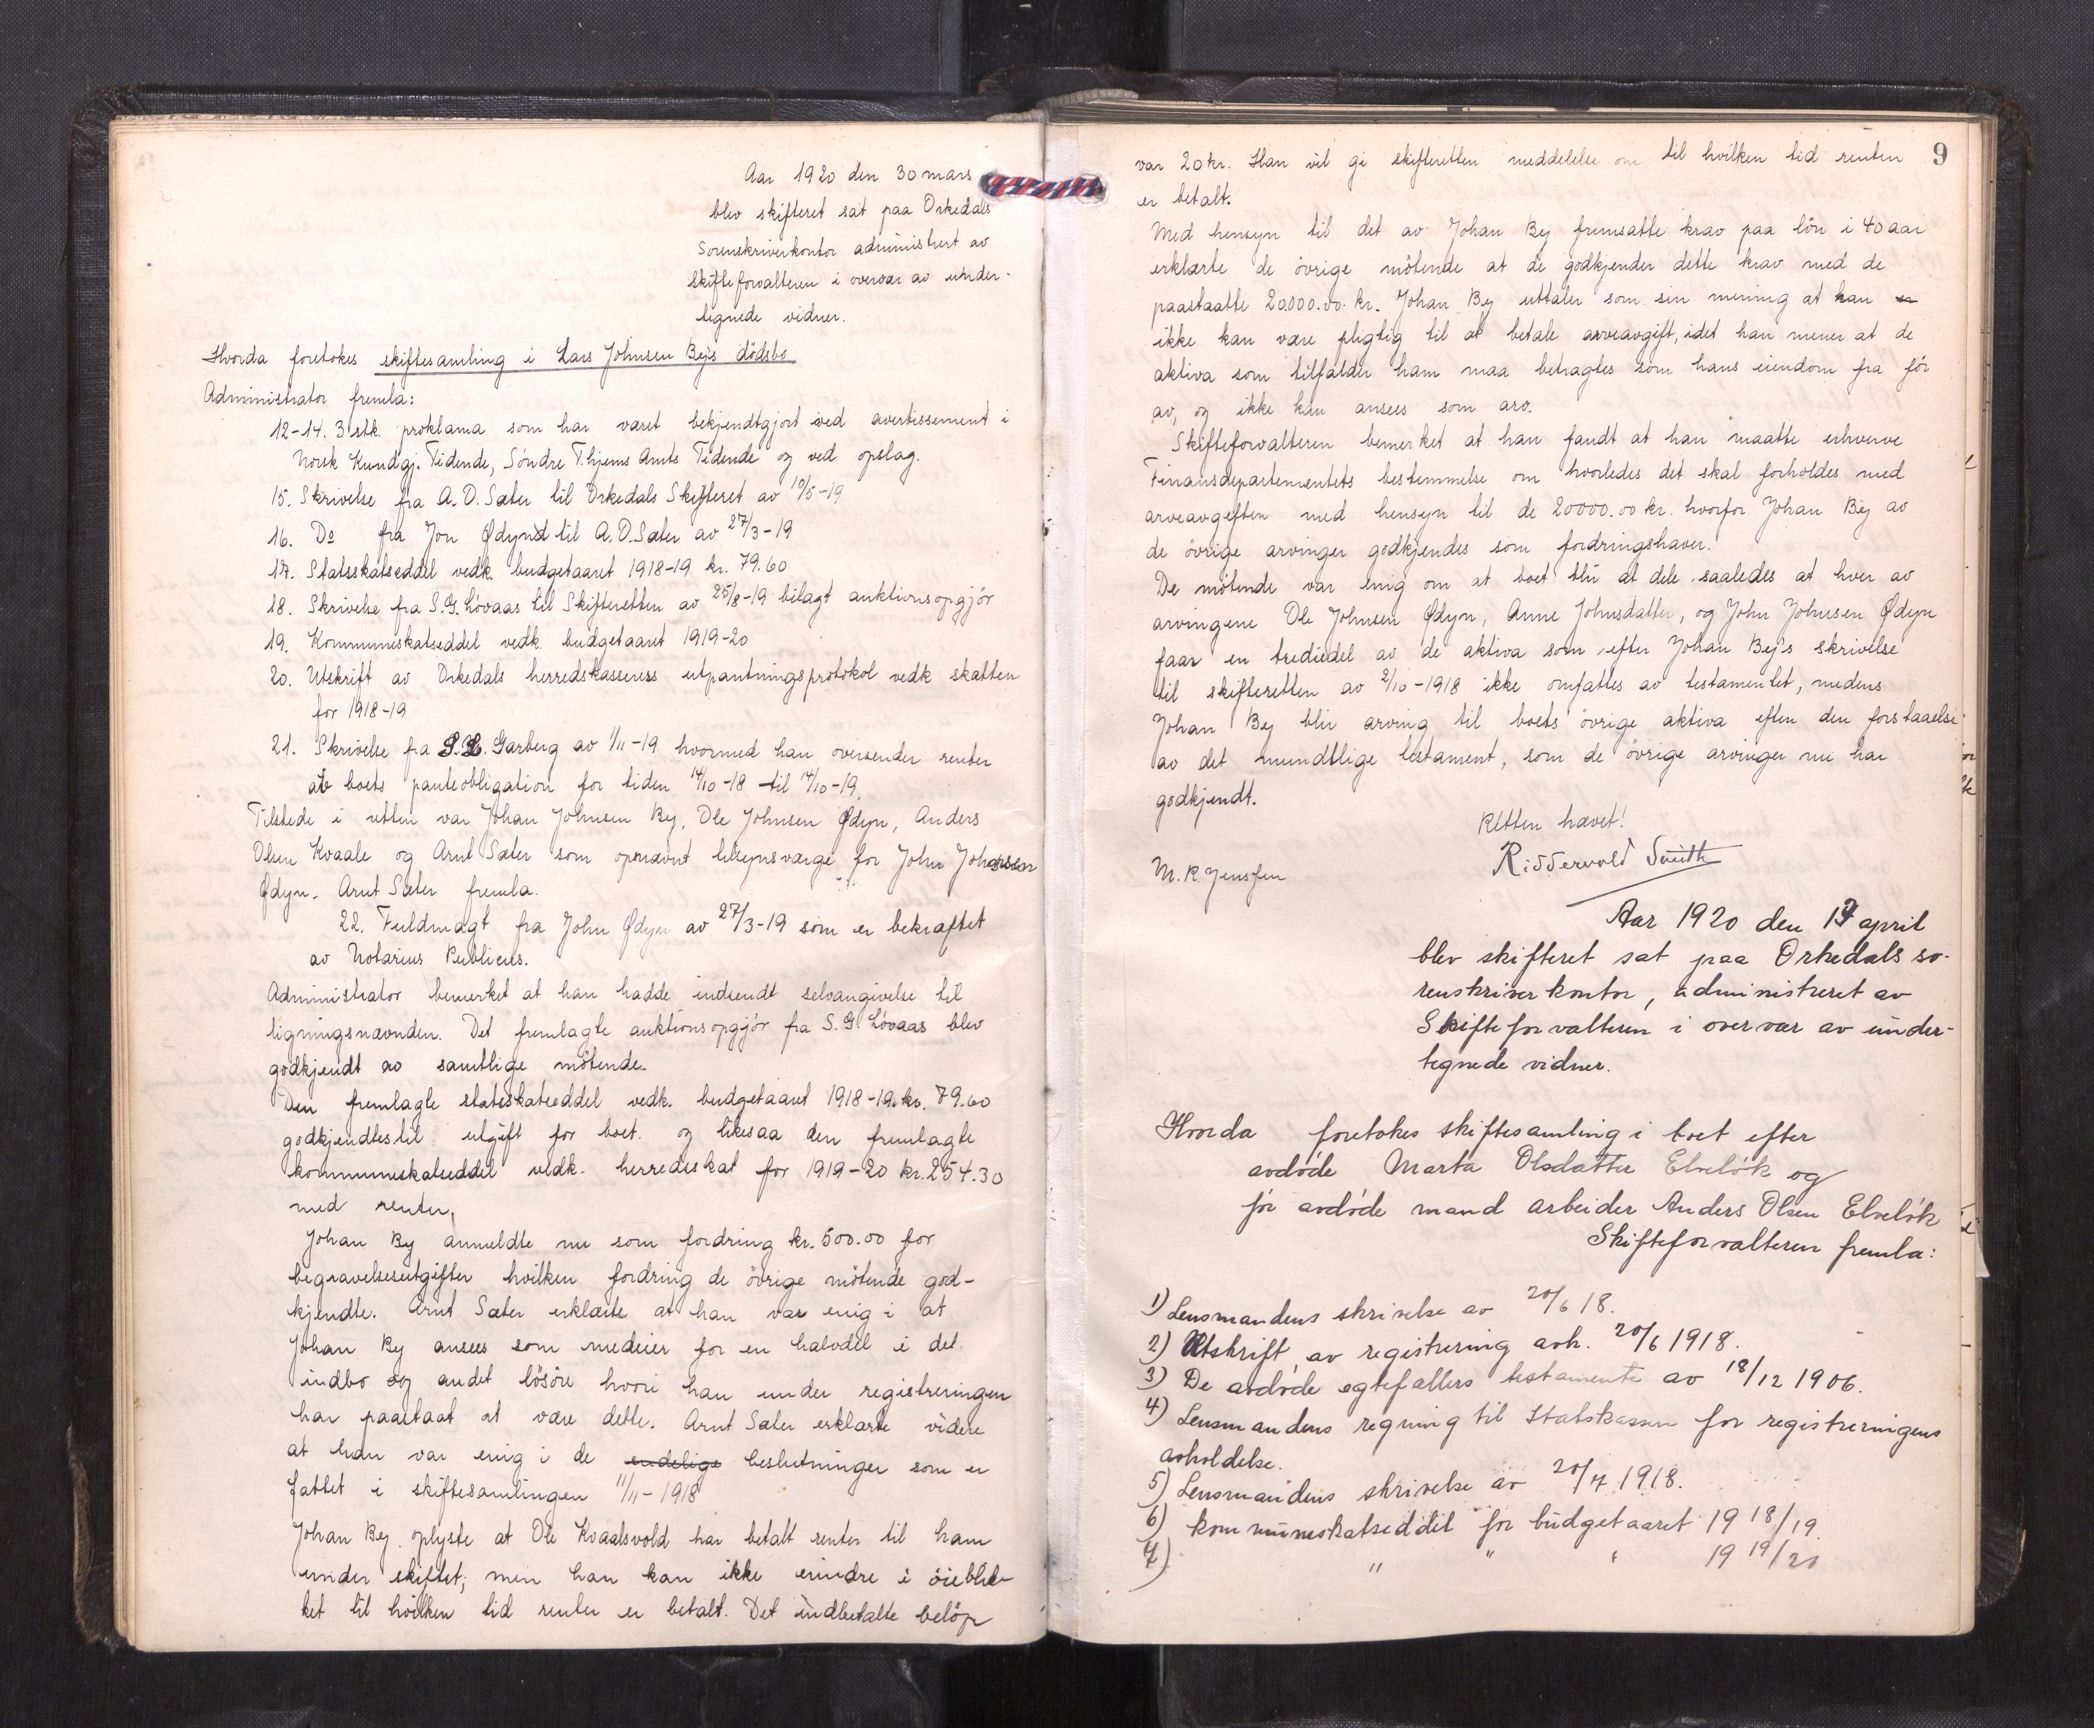 Aar 1920 den 30 mars
blev skifteret sat paa Orkedals
Sorenskriverkontor administrert av
skifteforvalteren i overvær av under-
tegnede vidner.
Hvorda foretokes skiftesamling i Lars Johnsen By's dödsbo
Administrator fremla:
12-14. 3 stk. proklama som har været bekjendtgjort ved avertissement i
Norsk Kundgj. Tidende, Söndre T.hjems Amts Tidende og ved opslag.
15. Skrivelse fra A. O. Sæter til Orkedals Skifteret av 10/5-19
16. Do fra Jon Ødynd til A. O. Sæter av 27/3-19
17. Statsskatseddel vedk. budgetaaret 1918-19 kr. 79.60
18. Skrivelse fra S. G. Lövaas til Skifteretten av 25/8-19 bilagt auktionsopgjör
19. Kommuneskatseddel vedk. budgetaaret 1919-20
20. Utskrift av Orkedals herredskasserers utpantningsprotokol vedk skatten
for 1918-19
21. Skrivelse fra S. L. Garberg av 1/11-19 hvormed han oversender renter
av boets panteobligation for tiden 14/10-18 til 14/10-19.
Tilstede i retten var Johan Johnsen By, Ole Johnsen Ødyn, Anders
Olsen Kvaale og Arnt Sæter som opnævnt tilsynsværge for John Johnsen
Ødyn. Arnt Sæter fremla.
22. Fuldmagt fra John Ødyn av 27/3-19 som er bekræftet
av Notarius Publicus.
Administrator bemerket at han hadde indsendt selvangivelse til
ligningsnævnden. Det fremlagte auktionsopgjör fra S. G. Lövaas blev
godkjendt av samtlige mötende.
Den fremlagte statsskatseddel vedk. budgetaaret 1918-19. kr. 79.60
godkjendtes til utgift for boet. og likesaa den fremlagte
kommuneskatseddel vedk. herredsskat for 1919-20 kr. 254.30
med renter.
Johan By anmeldte nu som fordring kr. 500.00 for
begravelsesutgifter hvilken fordring de övrige mötende god-
kjendte. Arnt Sæter erklærte at han var enig i at
Johan By ansees som medeier for en halvdel i det
indbo og andet lösöre hvori han under registreringen
har paastaat at være dette. Arnt Sæter erklærte videre
at han var enig i de endelige beslutninger som er
fattet i skiftesamlingen 11/11-1918
Johan By oplyste at Ole Kvaalsvold har betalt renter til ham
under skiftet; men han kan ikke erindre i öieblik-
ket til hvilken tid renter er betalt. Det indbetalte belöp
9
var 20 kr. Han vil gi skifteretten meddelelse om til hvilken tid renten
er betalt.
Med hensyn til det av Johan By fremsatte krav paa lön i 40 aar
erklærte de övrige mötende at de godkjender dette krav med de
paastaatte 20000.00 kr. Johan By uttaler som sin mening at han
ikke kan være pligtig til at betale arveavgift, idet han mener at de
aktiva som tilfalder ham maa betragtes som hans eiendom fra för
av, og ikke kan ansees som arv.
Skifteforvalteren bemerket at han fandt at han maatte erhverve
Finansdepartementets bestemmelse om hvorledes det skal forholdes med
arveavgiften med hensyn til de 20000.00 kr. hvorfor Johan By av
de övrige arvinger godkjendes som fordringshaver.
De mötende var enig om at boet blir at dele saaledes at hver av
arvingene Ole Johnsen Ødyn, Anne Johnsdatter, og John Johnsen Ødyn
faar en trediedel av de aktiva som efter Johan By's skrivelse
til skifteretten av 2/10-1918 ikke omfattes av testamentet, medens
Johan By blir arving til boets övrige aktiva efter den forstaaelse
av det mundtlige testament, som de övrige arvinger nu har
godkjendt.
Retten hævet!
Riddervold Smith
M. R. Jenssen
Aar 1920 den 17 april
blev skifteret sat paa Orkedals so-
renskriverkontor, administreret av
Skifteforvalteren i overvær av under-
tegnede vidner.
Hvorda foretokes skiftesamling i boet efter
avdöde Marta Olsdatter Elvelök og
för avdöde mand arbeider Anders Olsen Elvelök
Skifteforvalteren fremla:
1) Lensmandens skrivelse av 20/6 18.
2) Utskrift av registrering avh. 20/6 1918.
3) De avdöde egtefællers testamente av 18/12 1906.
4) Lensmandens regning til Statskassen for registreringens
avholdelse.
5) Lensmandens skrivelse av 20/7 1918.
6) kommuneskatseddel for budgetaaret 1918/19.
7) " " " 1919/20